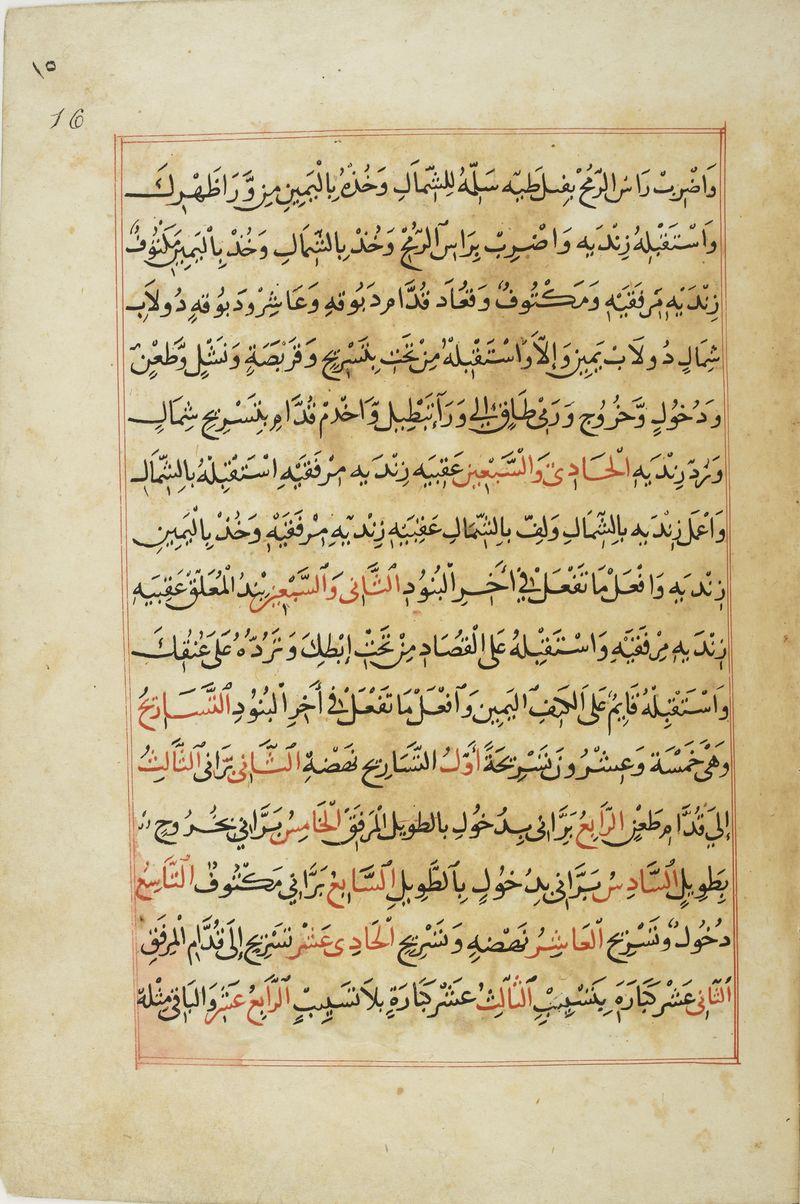 ١٥
16
وَاضْرِبْ رَاسُ الرُّمْحْ بِغِلطيّه سَلِّهُ لِلشِّمَالِ وَخُذْهُ بِالْيَمِينِ مِن وَّرَا ظَهْرِكَ
وَاسْتَقْبِلْهُ زِنْدَيه وَاضْرِبْ بِرَاسِ الرُّمْحْ وَخُذْ بِالشِّمَالِ وَخُذْ بِالْيَمِينِ مَكْتُوفٌ
زِنْدَيْهِ مِرفَقَيْهِ وَمَكْتُوفٌ وَقعُاد قُدَّام دَبُوقهِ وَعَاشِرْ ودَبُوقهِ دُولَابِ
شِمَالِ دُولَابْ يَمِينِ وَإِلَّا وَاسْتَقْبِلْهُ مِنْ تَحْتِ بِتَسْرِيحِ وَقَرْبَصَةٍ وَنَشْلٍ وَّطَعْنٍ
وَدُخُولٍ وَّخُرُوجِ وَرَمْىِ طَاقٍ الى وَرَآ تَبْطِيل وَّاخْدمْ قُدَّامِ بِتَسْرِيحِ شِمَالِ
وَرُدّ زِنْدَيهِ الْحَادِىَ وَالسَّبْعِينَ عَقِبَيه زِنْدَيه مِرْفَقَيْهِ اسْتَقْبِلْهُ بِالشِّمَالِ
وَاعْمَل زِنْدَيه بِالشِّمَالِ وَلِفّ بِالشِّمَالِ عَقِبَيْهِ زِنْدَيهِ مِرْفَقَيْهِ وَخُذْ بِالْيَمِينِ
زِنْدَيهِ وَافْعَلْ مَا تَفْعَلْ فِى أَخِرِ الْبُنُودِ الثَّانِى وَالسَّبْعِينَ بِنْدُ الْمُعَلَّقْ عَقِبَيهِ
زِنْدَيهِ مِرْفَقَيْهِ وَاسْتَقْبِلهُ عَلَى الْقُصَادِ مِنْ تَحْتْ إِبْطِكَ وَتَرُدّهُ عَلَى عُنُقِكَ
وَاسْتَقْبِلْهُ قَايِمٌ عَلَى الكَتِفِ الْيَمِينِ وَآفْعَلْ مَا تَفْعَلْ فِى أَخِرِ الْبُنُودِ التَّسَارِيحُ
وَهْىَ خَمْسَة وَعِشْرُونَ تَسْرِيحَةً أَوَّلُ التَّسَارِيحِ نَهْضَةٌ الثَّانِى بَرَّانى الثَّالِثُ
إِلَى قُدَّام طَعْنٍ الرَّابِعُ بَرَّانى بِدُخُولِ بالطويل الْمَرفَقْ الْخَامِسُ بَرَّانِي بِخُرُوجِ
بِطَوِيلٍ السَّادِسُ بَرَّانى بِدُخُولٍ بِالطَّوِيلِ السَّابِعُ بَرَّانِي مَكْتُوفٌ التَّاسِعُ
دُخُولٌ وَتَسْرِيح الْعَاشِرُ نَهْضِهِ وَتَسْرِيحِ الْحَادِى عَشْر تَسْرِيحِ إِلَى قُدَّامِ الْمِرفَقِ
الثَّانِى عَشْر كَبَّارَهَ بِتَسْيِيْبِ الثَّالِثُ عَشْر كَبَّارَةٍ بِلَا تَسْيِيبْ الرَّابِعُ عَشَر وَالبَاقِى مِثْلُهُ